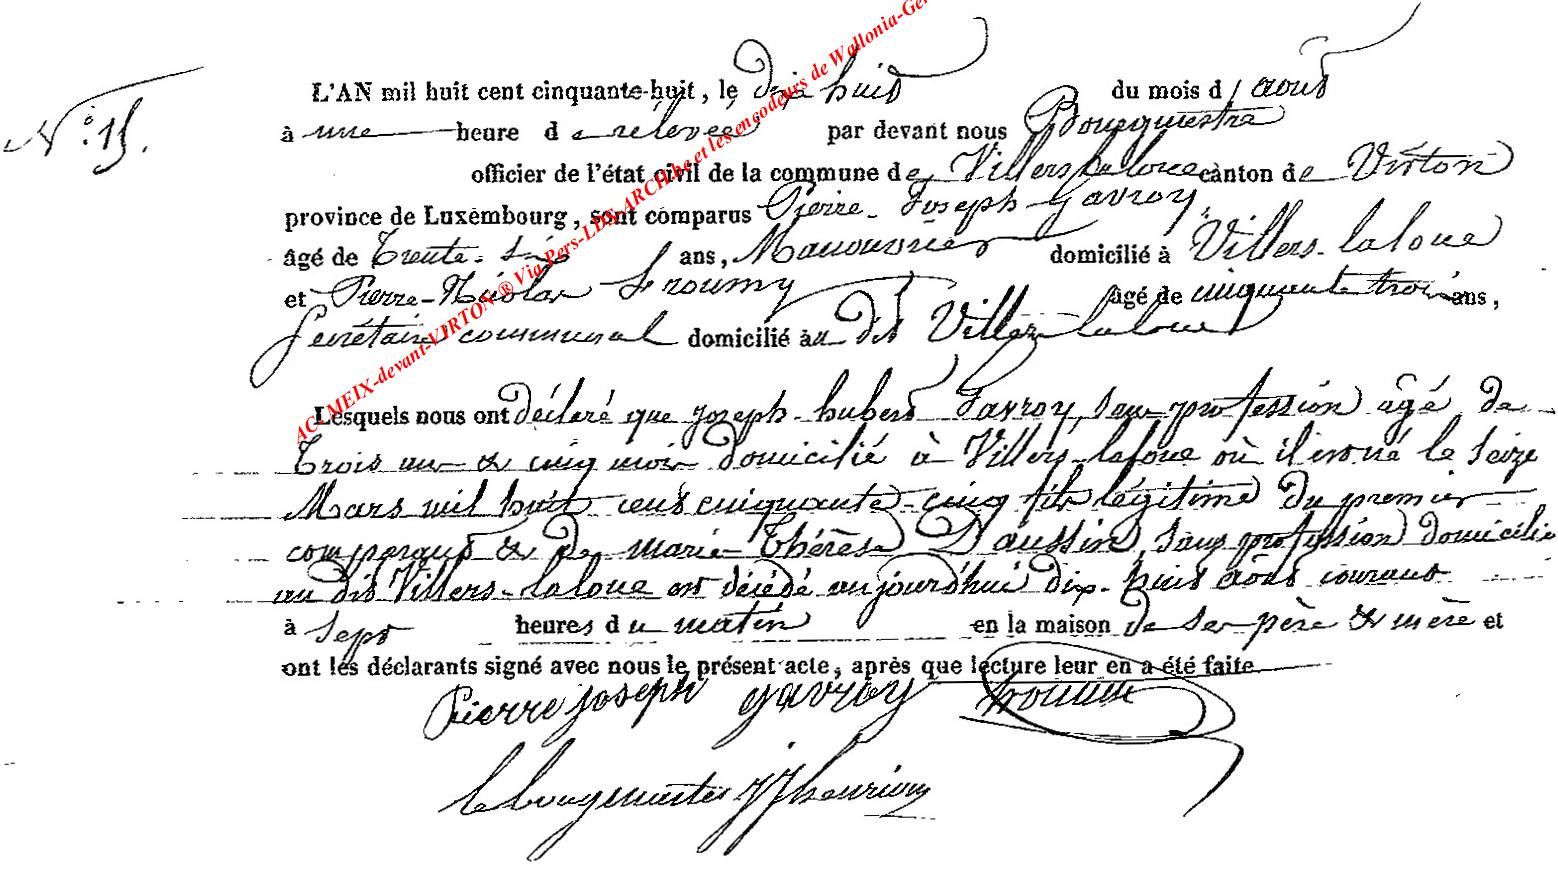 N° 15.
L'AN mil huit cent cinquante-huit, le dix huit du mois d'août
à une heure de rélevée par devant nous Bourgmestre
officier de l'état civil de la commune de Villers laloue canton de Virton
province de Luxembourg, sont comparus Pierre-Joseph Gavroy,
âgé de Trente-six ans, Manouvrier domicilié à Villers-laloue
et Pierre-Nicolas âgé de cinquante trois ans,
Secrétaire communal domicilié au dit Villers-laloue
Lesquels nous ont déclaré que joseph-hubert Gavroy, sans profession âgé de
Trois ans & cinq mois domicilié à Villers-laloue où il est né le Seize
Mars mil huit cent cinquante-cinq fils légitime du premier
comparant & de marie Thérèse Daussin, sans profession domicilié
au dit Villers-laloue est décédé aujourd'hui dix-huit août courant
à Sept heures du matin en la maison de ses père & mère et
ont les déclarants signé avec nous le présent acte, après que lecture leur en a été faite
Pierre joseph gavroy
le bourgmestre
ACMEIX-devant-VIRTON ® Via Pers-LDS-ARCH.be et les encodeurs de Wallonia-Ge